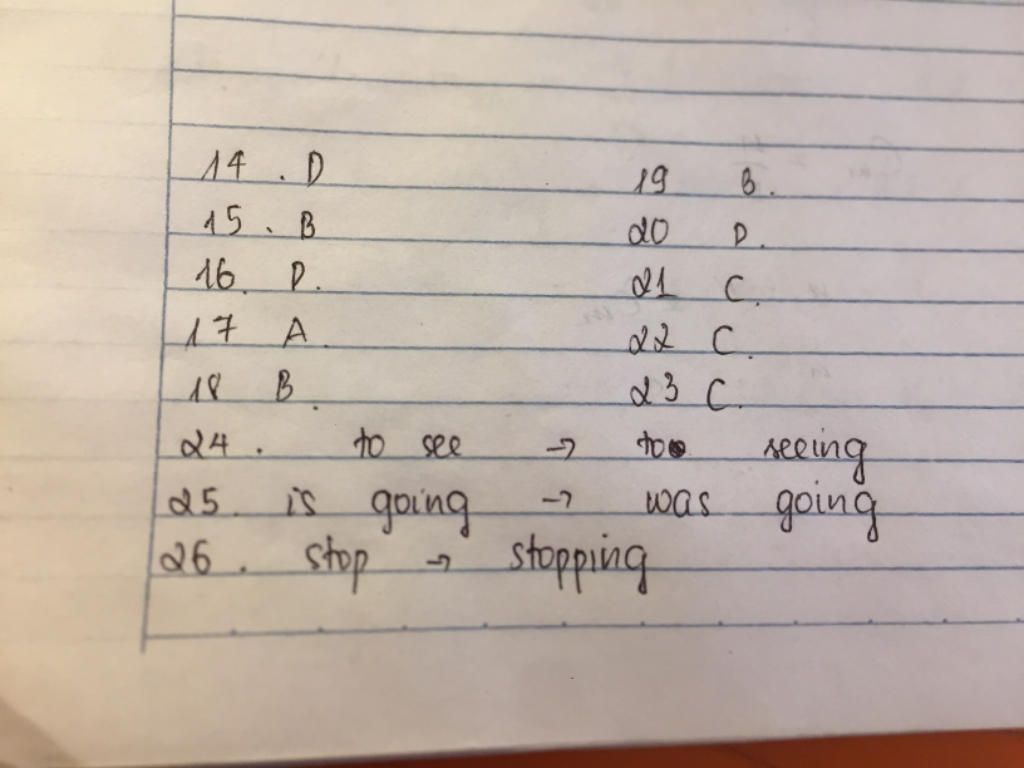 14 . D
15 . B
16. D.
17 A.
18 B.
19 B.
20 D.
21 C.
22 C.
23 C.
24 . to see → to seeing
25. is going → was going
26 . stop → stopping